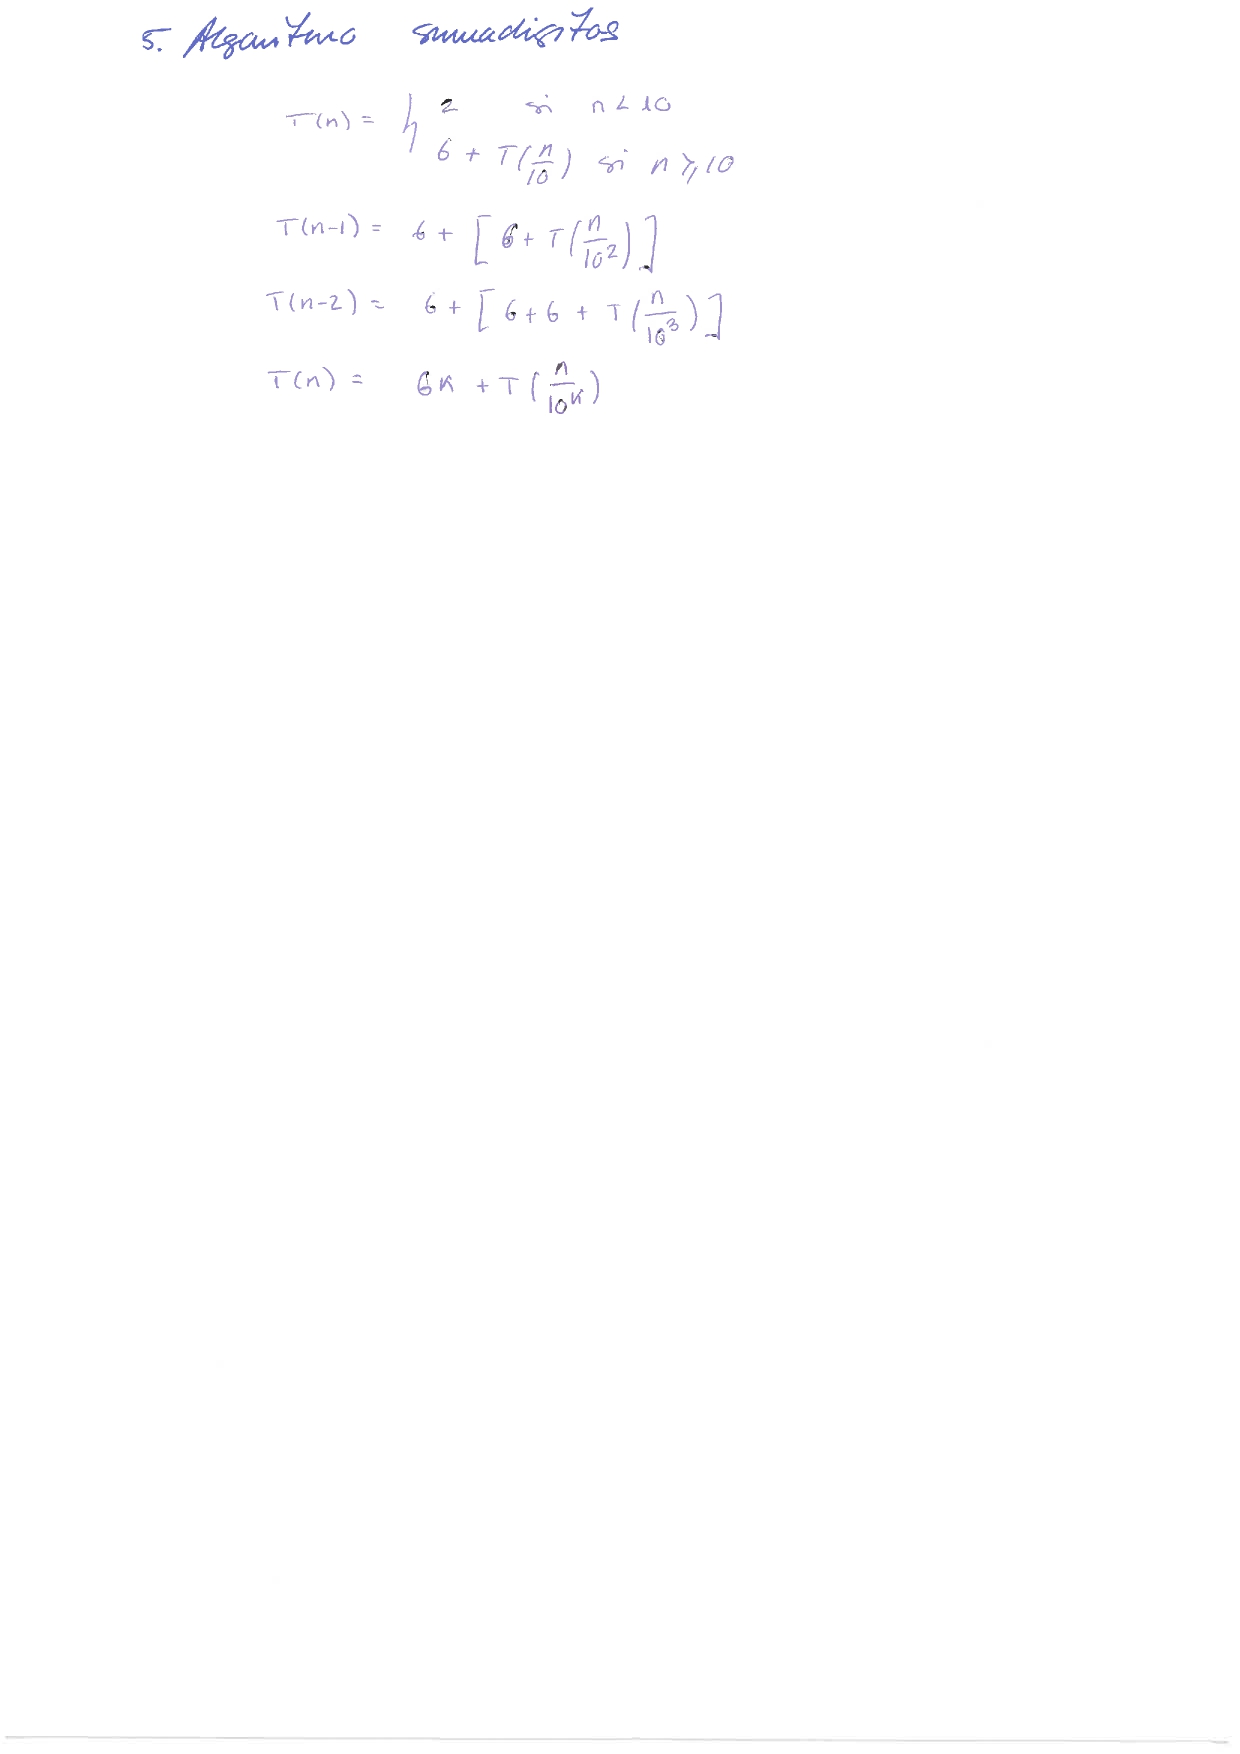 5. Algoritmo sumadigitos
T(n) = { 2 si n < 10
6 + T(n/10) si n ≥ 10
T(n-1) = 6 + [6 + T(n/10²)]
T(n-2) = 6 + [6+6 + T(n/10³)]
T(n) = 6k + T(n/10^k)